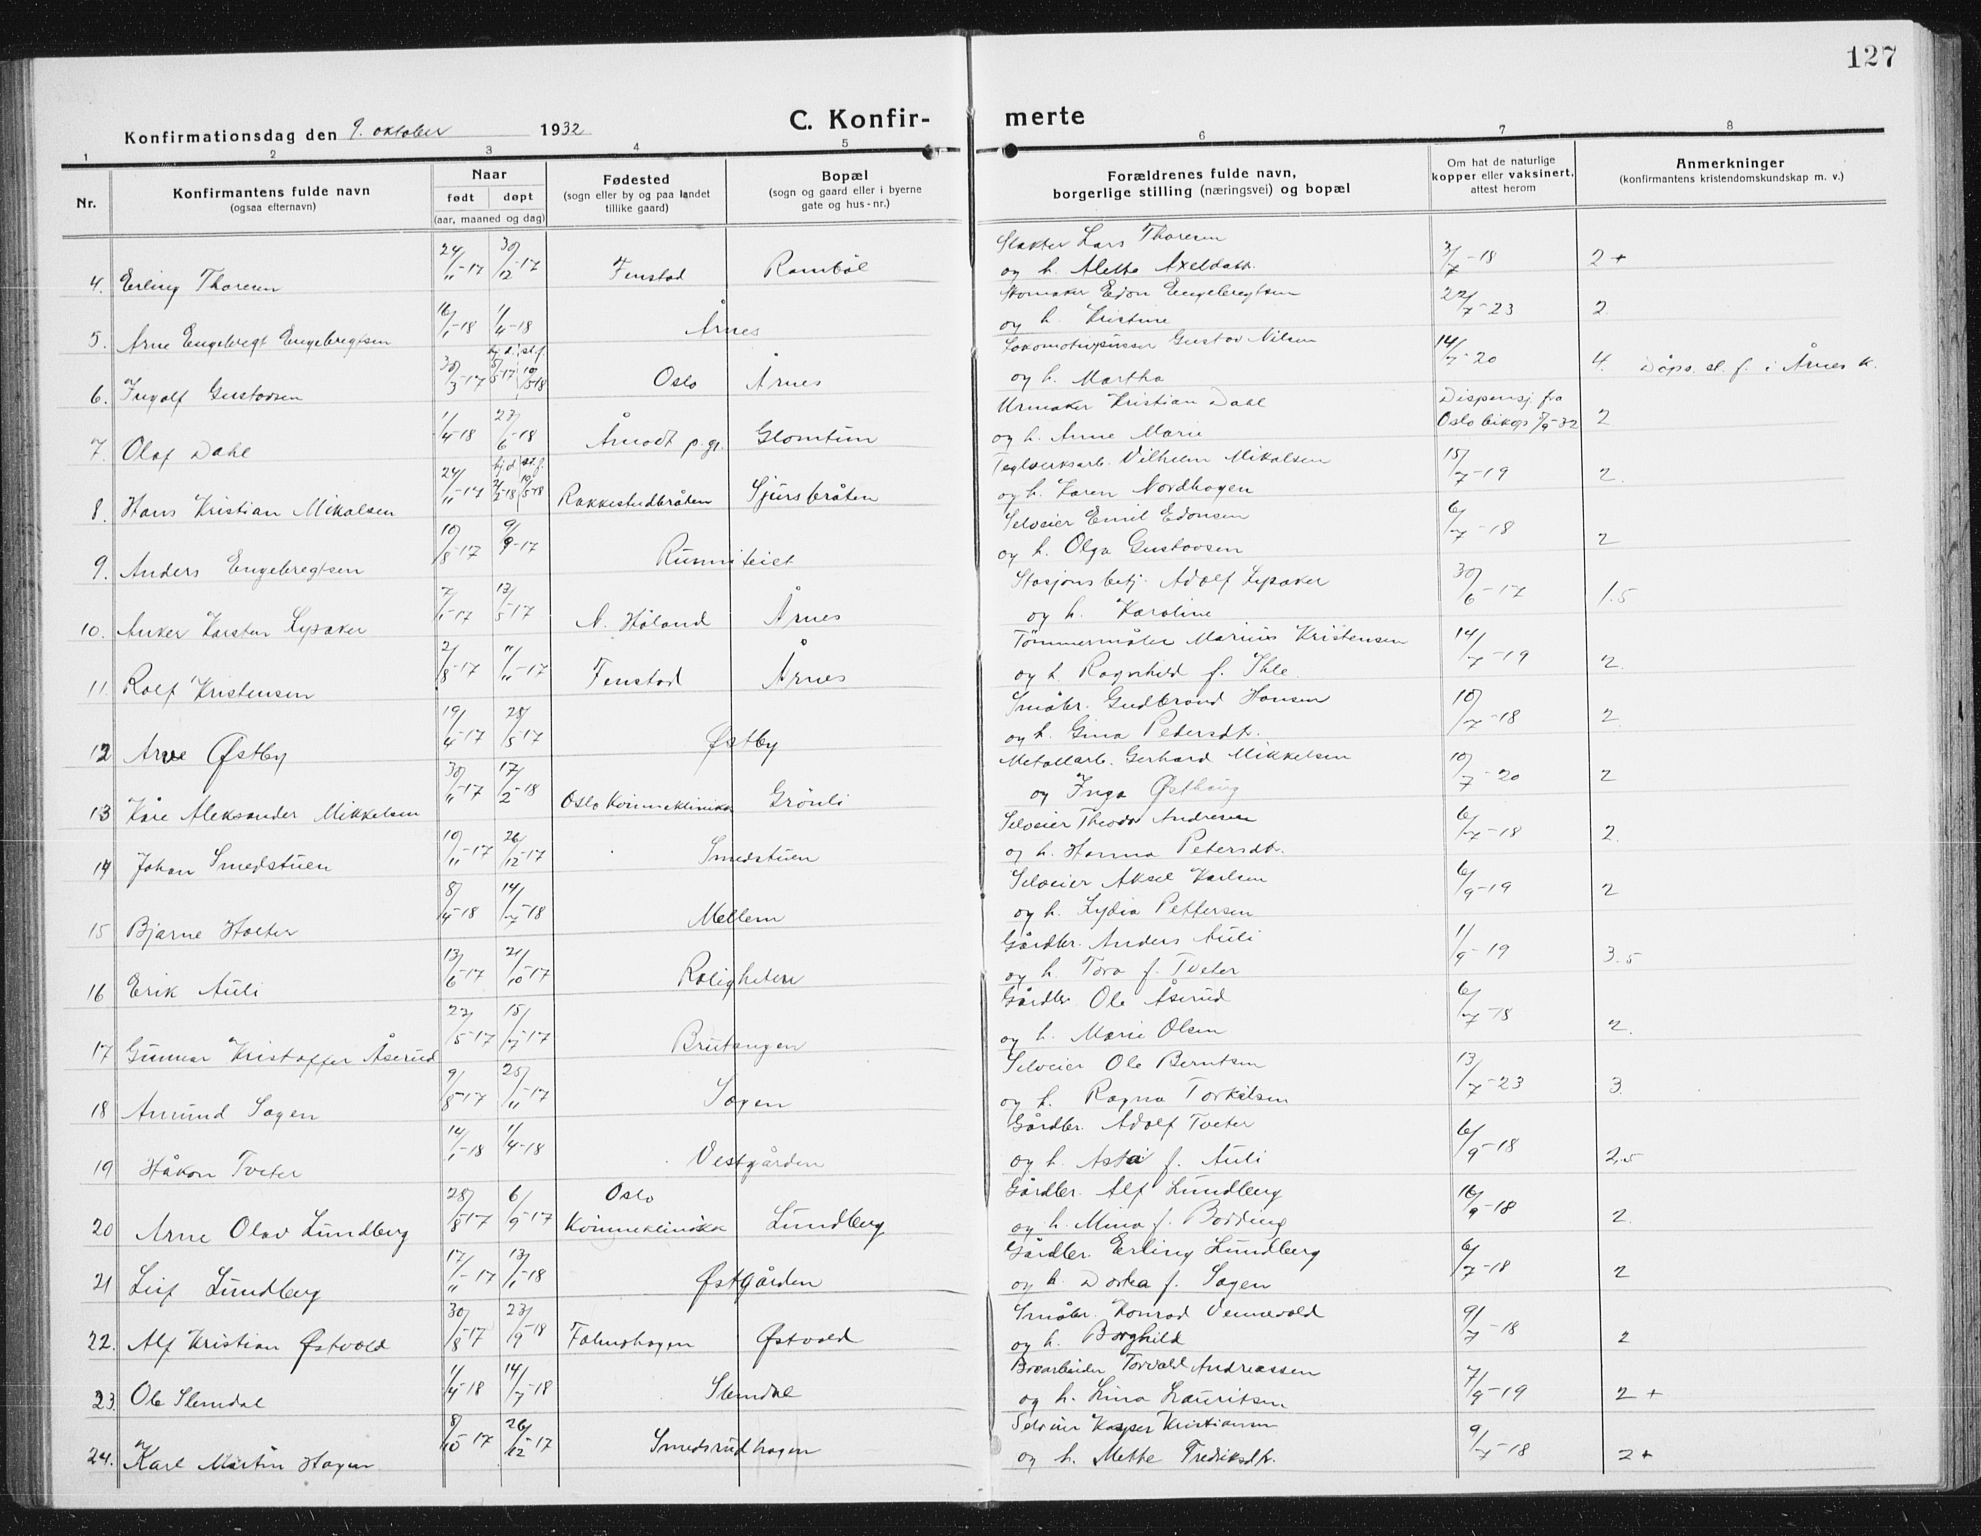 127
Konfirmationsdag den 9. oktober 1932
C. Konfir-merte
1 2 3 4 5 6 7 8
Nr.
Konfirmantens fulde navn
(ogsaa efternavn)
Naar
født døpt
(aar, maaned og dag)
Fødested
(sogn eller by og paa landet
tillike gaard)
Bopæl
(sogn og gaard eller i byerne
gate og hus-nr.)
Forældrenes fulde navn,
borgerlige stilling (næringsvei) og bopæl
Om hat de naturlige
kopper eller vaksinert,
attest herom
Anmerkninger
(konfirmantens kristendomskundskap m. v.)
4. Erling Thoresen 24/11-17 30/12-17 Fenstad Rambøl Slakter Lars Thoresen
og h. Alette Axeldatt. 3/7-18 2+
5. Arne Engebregt Engebregtsen 16/1-18 1/4-18 Årnes Skomaker Edon Engebregtsen
og h. Kristine 22/7-23 2
6. Ingolf Gustavsen 30/3-17 hj.d. 5/5-17 st.f. 10/5-18 Oslo Årnes Lokomotivpusser Gustav Nilsen
og h. Martha 14/7-20 4. Dåps. st. f. i Årnes k.
7. Olaf Dahl 1/4-18 23/6-18 Årnodt p.gr. Glomtun Urmaker Kristian Dahl
og h. Anne Marie Dispensj. fra
Oslo biskop /9-32 2
8. Hans Kristian Mikalsen 24/11-17 hj.d. st.f. 10/5-18 Rakkestadbråten Sjursbråten Teglverksarb. Vilhelm Mikalsen
og h. Karen Nordhagen 15/7-19 2.
9. Anders Engebregtsen 10/8-17 9/9-17 Runniteiet Selveier Emil Edonsen
og h. Olga Gustavsen 6/7-18 2
10. Anker Karsten Lysaker 7/1-17 13/5-17 N. Høland Årnes Stasjonsbetj. Adolf Lysaker
og h. Karoline 30/6-17 1.5
11. Rolf Kristensen 2/8-17 11/11-17 Fenstad Årnes Tømmermåler Marius Kristensen
og h. Ragnhild f. Ihle 14/7-19 2.
12 Arve Østby 19/4-17 28/5-17 Østby Småbr. Gudbrand Hansen
og h. Gina Pedersdt. 10/7-18 2.
13 Kåre Aleksander Mikkelsen 30/11-17 17/2-18 Oslo Kvinneklinikk Grönli Metallarb. Gerhard Mikkelsen
og Inga Østhaug 10/7-20 2
14 Johan Smedstuen 10/11-17 26/12-17 Smedstuen Selveier Theodor Andresen
og h. Hanna Petersdt. 6/7-18 2.
15 Bjarne Holter 8/4-18 14/7-18 Mellem Selveier Aksel Karlsen
og h. Lydia Pettersen 6/9-19 2
16 Erik Auli 13/6-17 21/10-17 Roligheten Gårdbr. Anders Auli
og h. Tora f. Tveter 1/9-19 3.5
17 Gunnar Kristoffer Åserud 27/5-17 15/7-17 Brutangen Gårdbr. Ole Åserud
og h. Marie Olsen 6/7-18 2.
18 Amund Sagen 9/8-17 25/11-17 Sagen Selveier Ole Berntsen
og h. Ragna Torkilsen 13/7-23 3.
19 Håkon Tveter 14/1-18 1/4-18 Vestgården Gårdbr. Adolf Tveter
og h. Asta f. Auli 6/9-18 2.5
20 Arne Olav Lundberg 28/8-17 6/9-17 Oslo
Kvinneklinikk Lundberg Gårdbr. Alf Lundberg
og h. Mina f. Bodding 16/9-18 2.
21 Leif Lundberg 17/11-17 13/1-18 Østgården Gårdbr. Erling Lundberg
og h. Dorthea f. Sagen 6/7-18 2
22. Alf Kristian Østvold 30/8-17 23/9-18 Falmohagen Østvold Småbr. Konrad Vennevold
og h. Borghild 9/7-18 2
23. Ole Slemdal 1/4-18 14/7-18 Slemdal Torvald Andreassen
og h. Lina Lauritsen 7/9-19 2+
24. Karl Martin Hagen 8/10-17 26/12-17 Smedsrudhagen Selveier Kasper Kristiansen
og h. Methe Fredriksdt. 9/7-18 2+